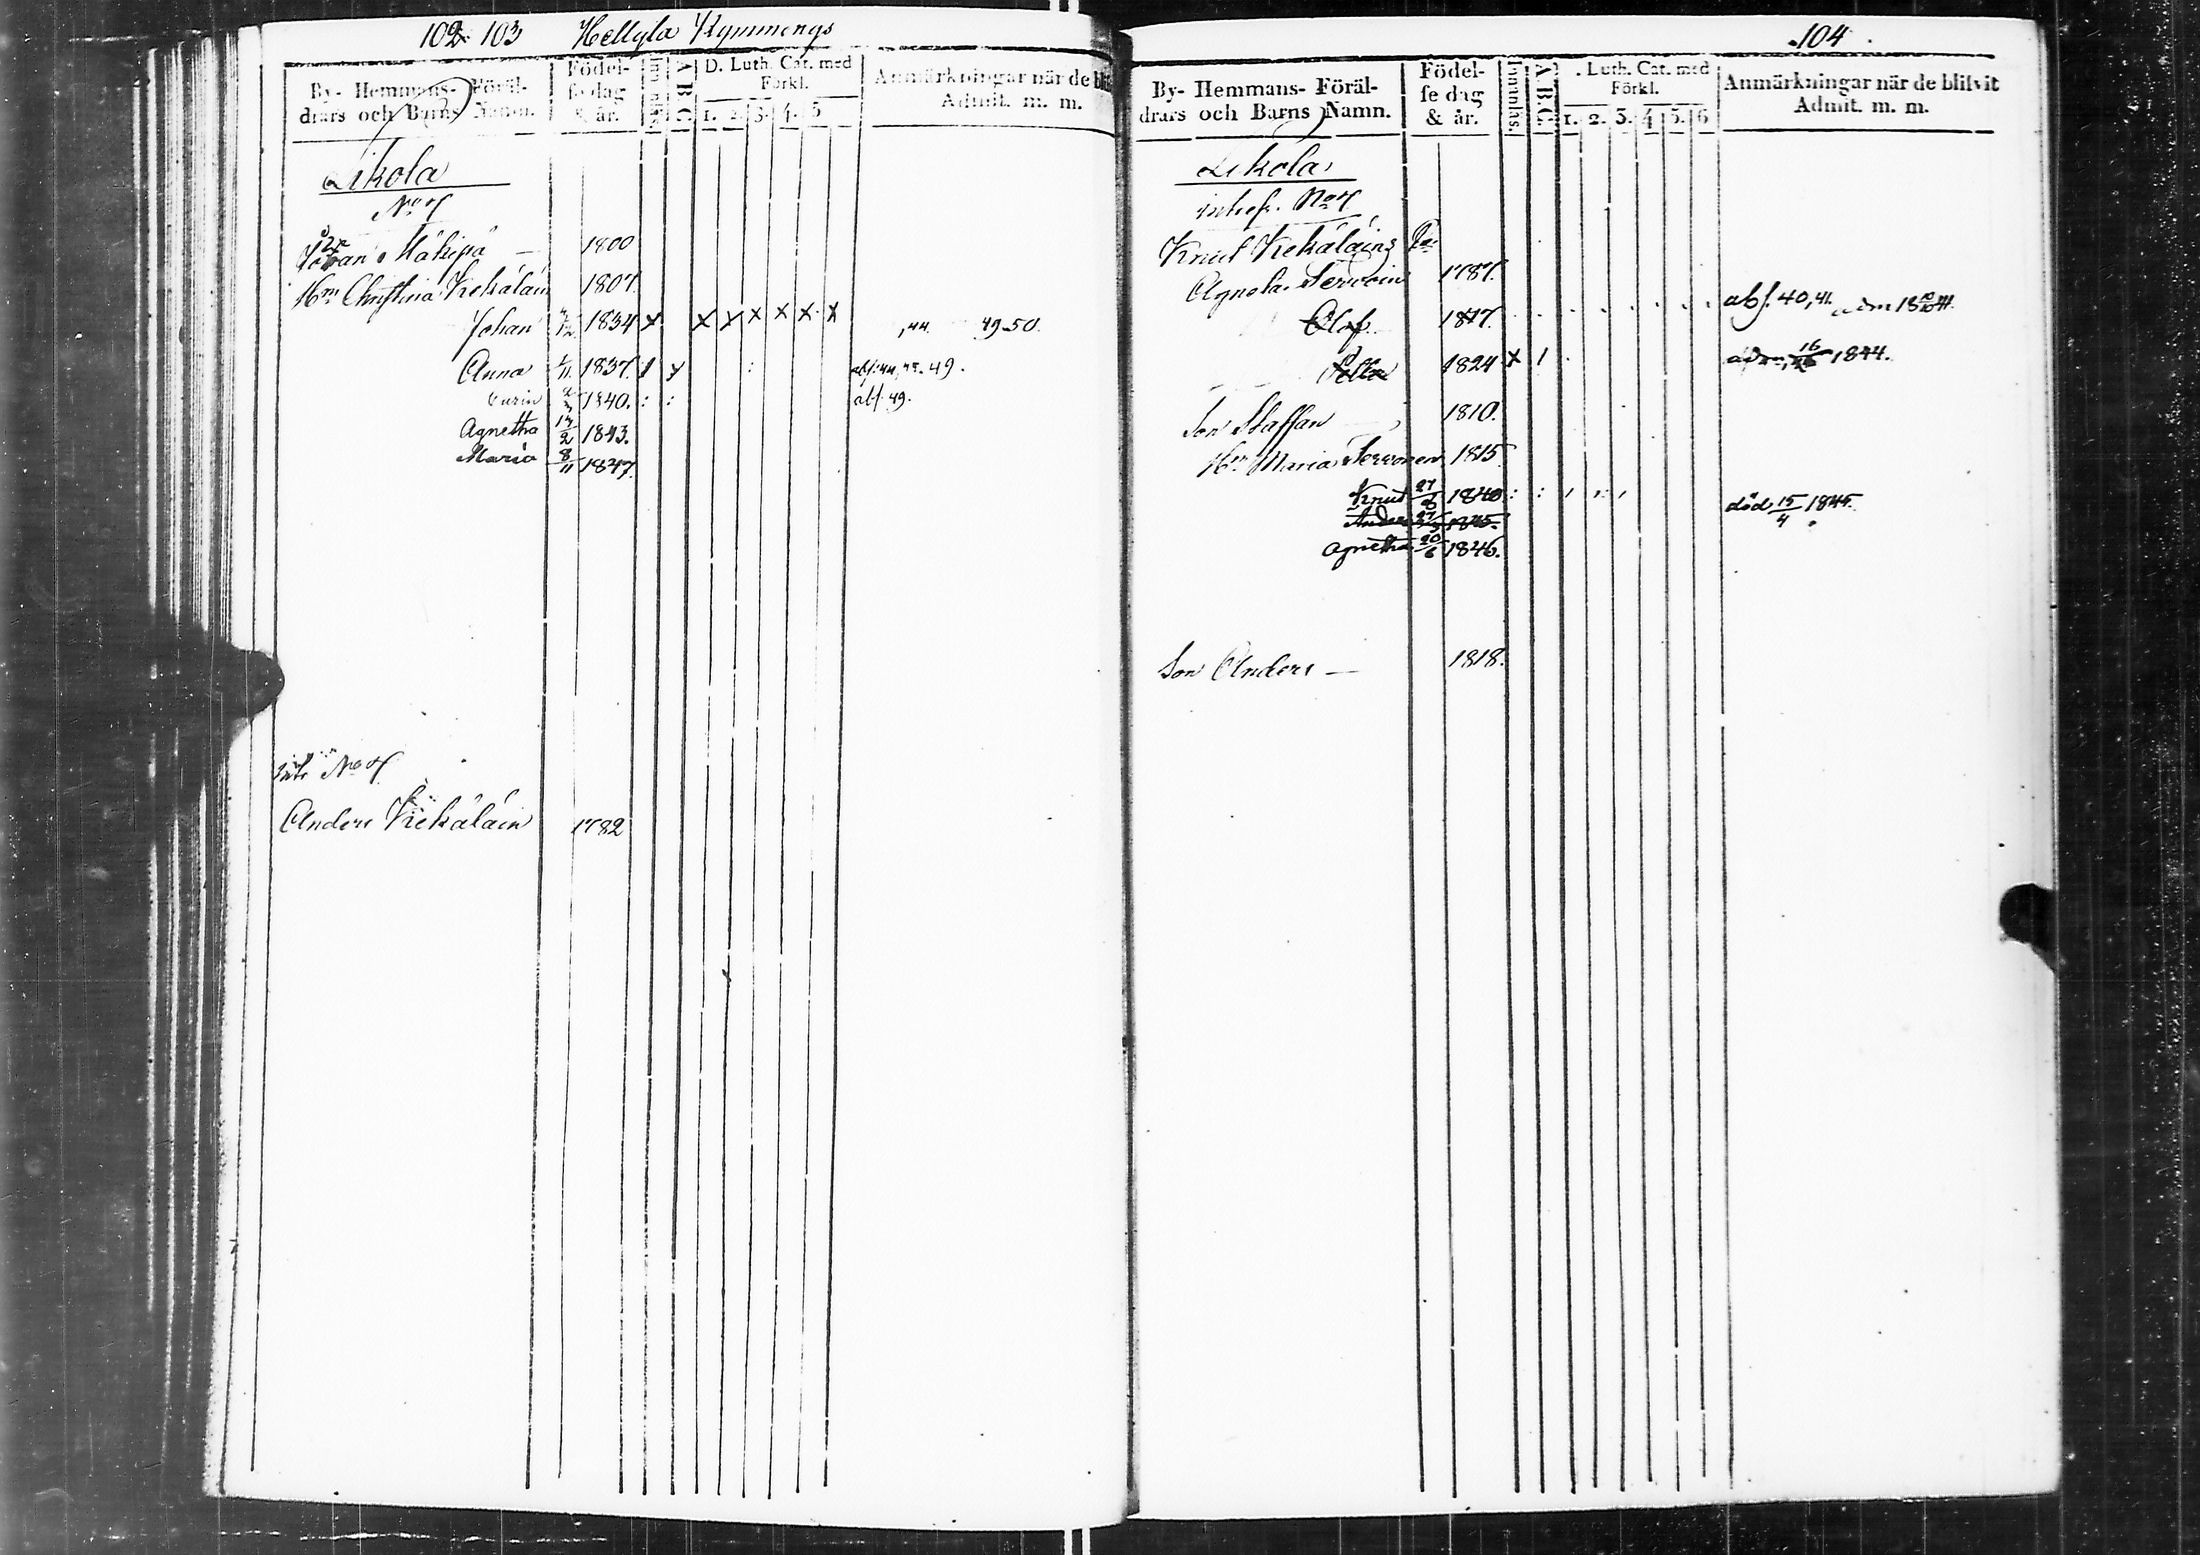 102 103 Hellyla Kymmengs
By- Hemmans- Föräl-
drars och Barns Namn.
Födel-
se dag
& år.
A. B. C.
D. Luth. Cat. med
Förkl.
1. 2. 3. 4. 5
Anmärkningar när de bli
Admit. m. m.
Likola
No 7
Johan Mähipä — 1800
Hm Christina Kekäläin 1807.
Johan 1834 x x x x x x x ,44. 49-50.
Anna 1837. abs: 44, 45. 49.
Carin 1840. : : abs 49.
Agnetha 1843.
Maria 8/11 1847.
No 7
Anders Kekäläin 1782
104
By- Hemmans- Föräl-
drars och Barns Namn.
Födel-
se dag
& år.
Innanläs.
A. B. C.
. Luth. Cat. med
Förkl.
1. 2. 3. 4. 5. 6
Anmärkningar när de blifvit
Admit. m. m.
Likola
No 7.
Knut Kekäläins
Agneta Servoin 1787.
Olof 1817. abs. 40, 41.
1824 x 1 1844.
Son Staffan 1810.
Hm Maria Servonen 1815
Knut 1840 : :
Anders 1845. död 15/4 1845.
Agnetha 20/6 1846.
Son Anders — 1818.